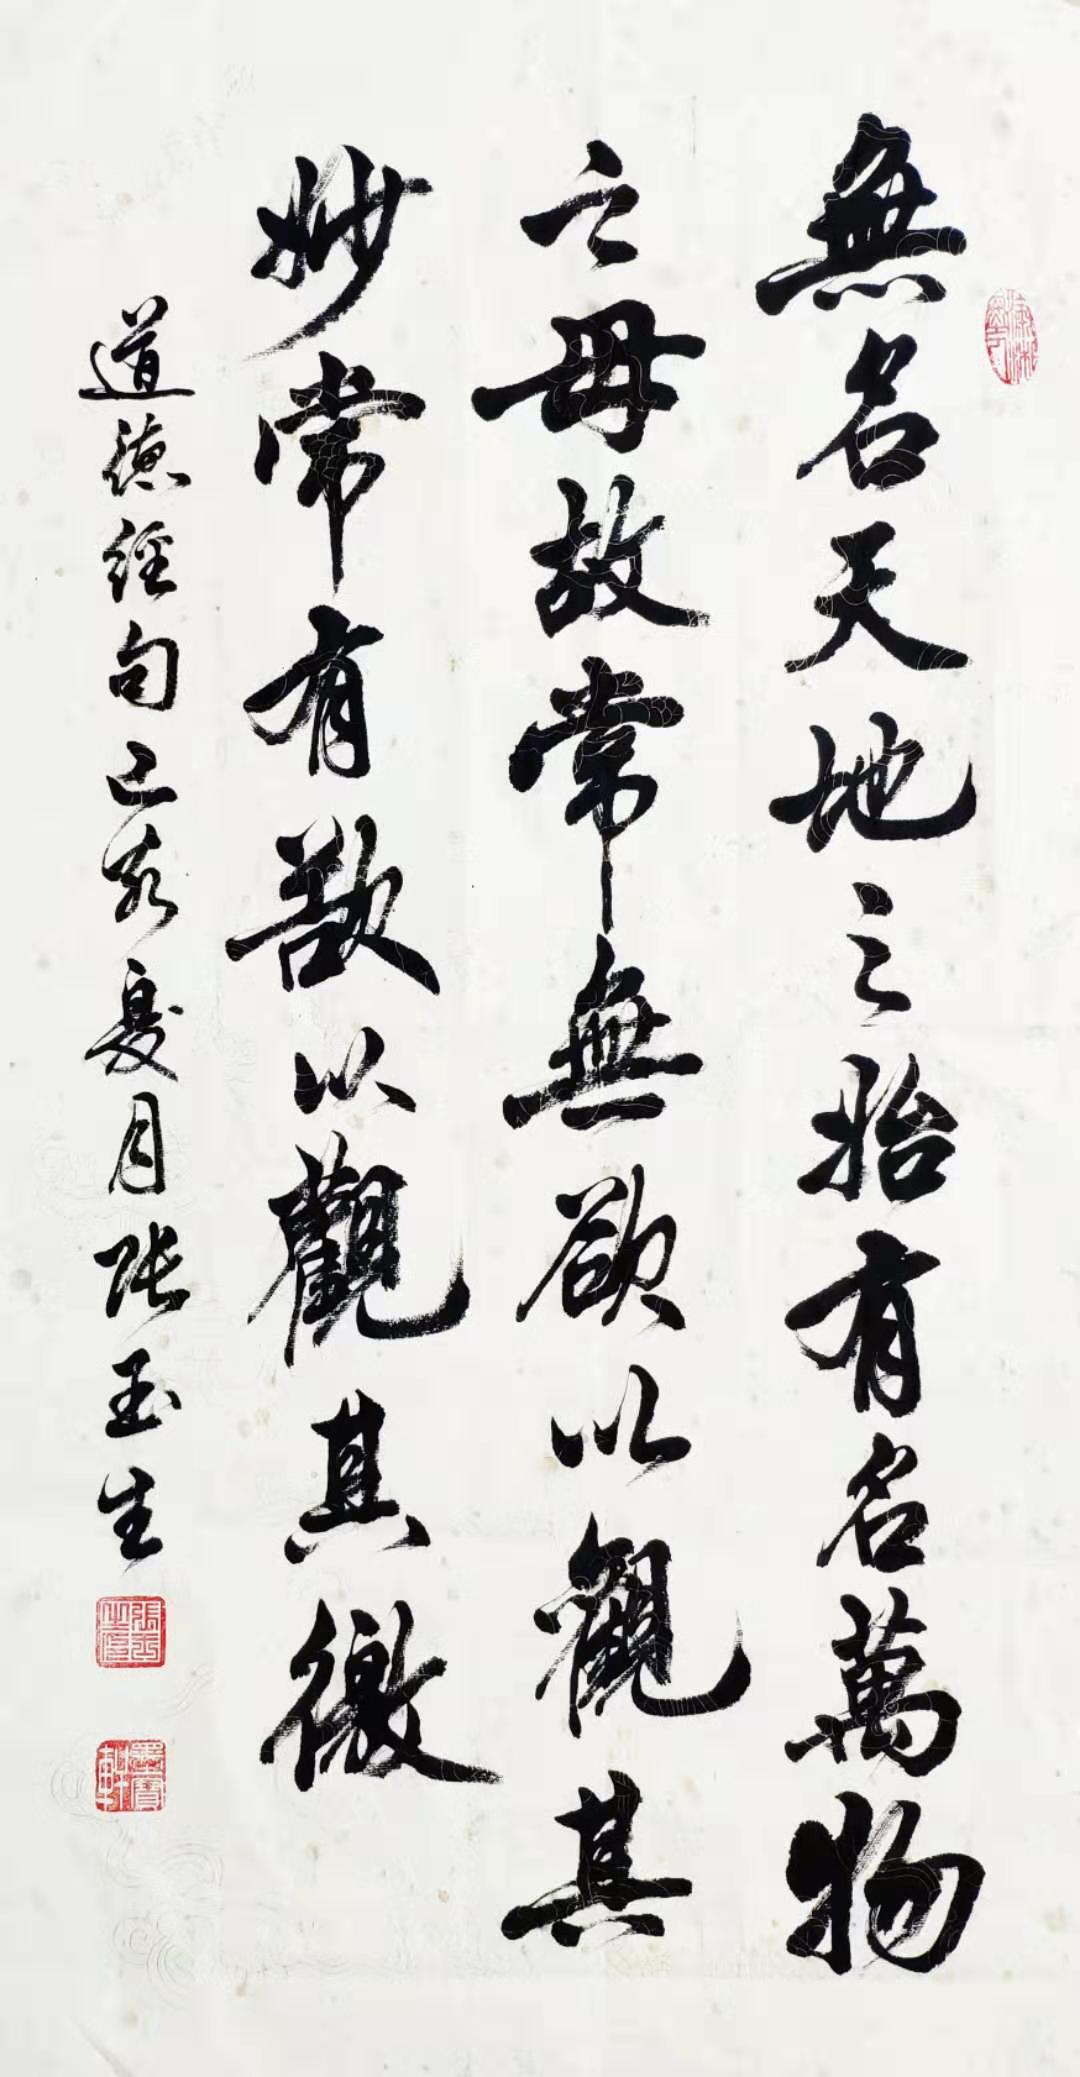 無名天地之始有名萬物
之母故常無欲以觀其
妙常有欲以觀其徼
道德經句己亥夏月張玉生
張玉生印
墨寶軒